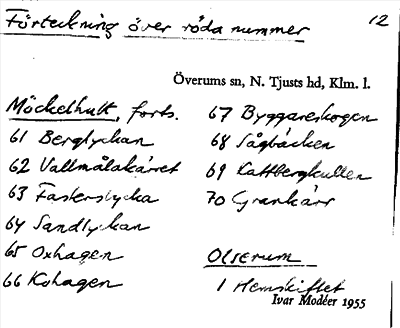 Förteckning över röda nummer 12
Överums sn, N. Tjusts hd, Klm. l.
Möckelhult, forts.
61 Berglyckan
62 Vallmålakärret
63 Fasterslycka
64 Sandlyckan
65 Oxhagen
66 Kohagen
67 Byggareskogen
68 Sågbäcken
69 Kattbergkullen
70 Grankärr
Olserum
1 Hemskiftet
Ivar Modéer 1955